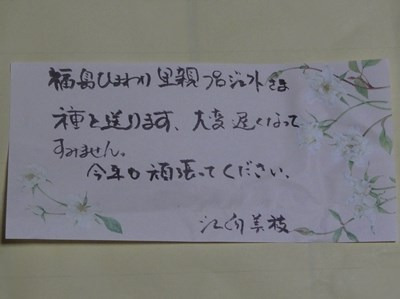 福島ひまわり里親プロジェクトさま
種を送ります、大変遅くなって
すみません。
今年も頑張ってください、
江向美枝